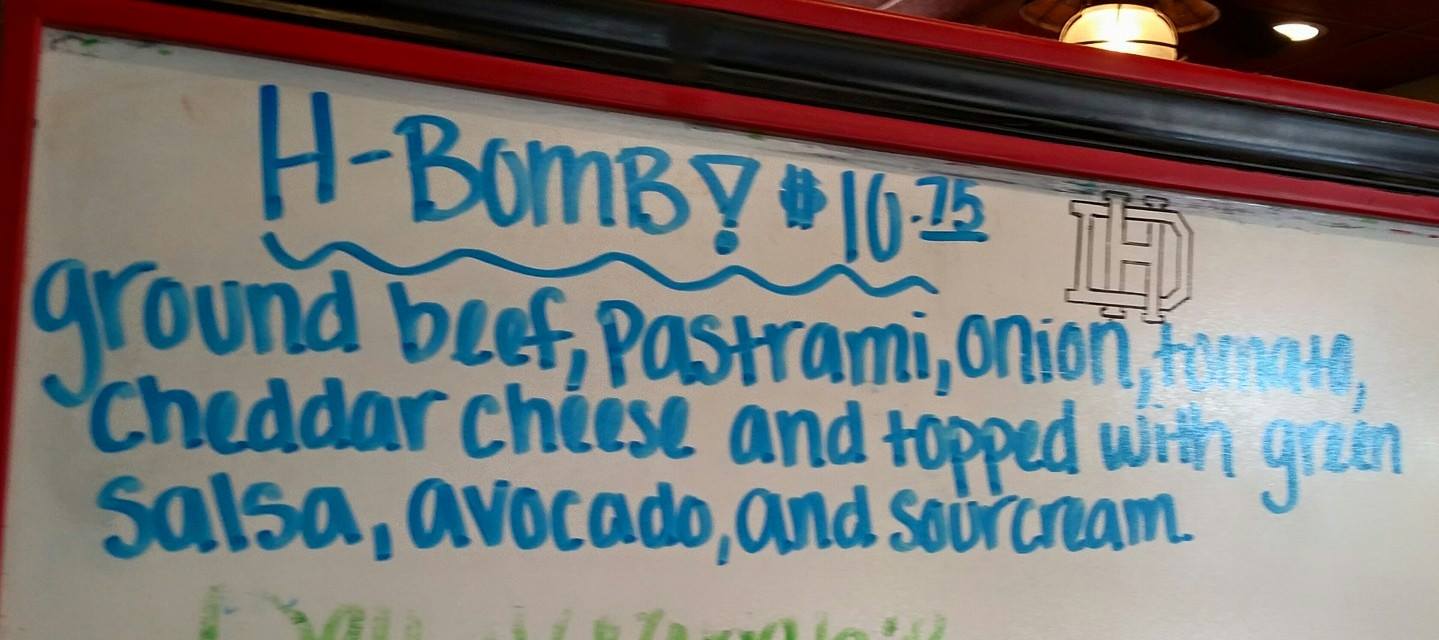 H-BomB! $10.75
HD
ground beef, Pastrami, onion, tomato,
cheddar cheese and topped with green
salsa, avocado, and sourcream.